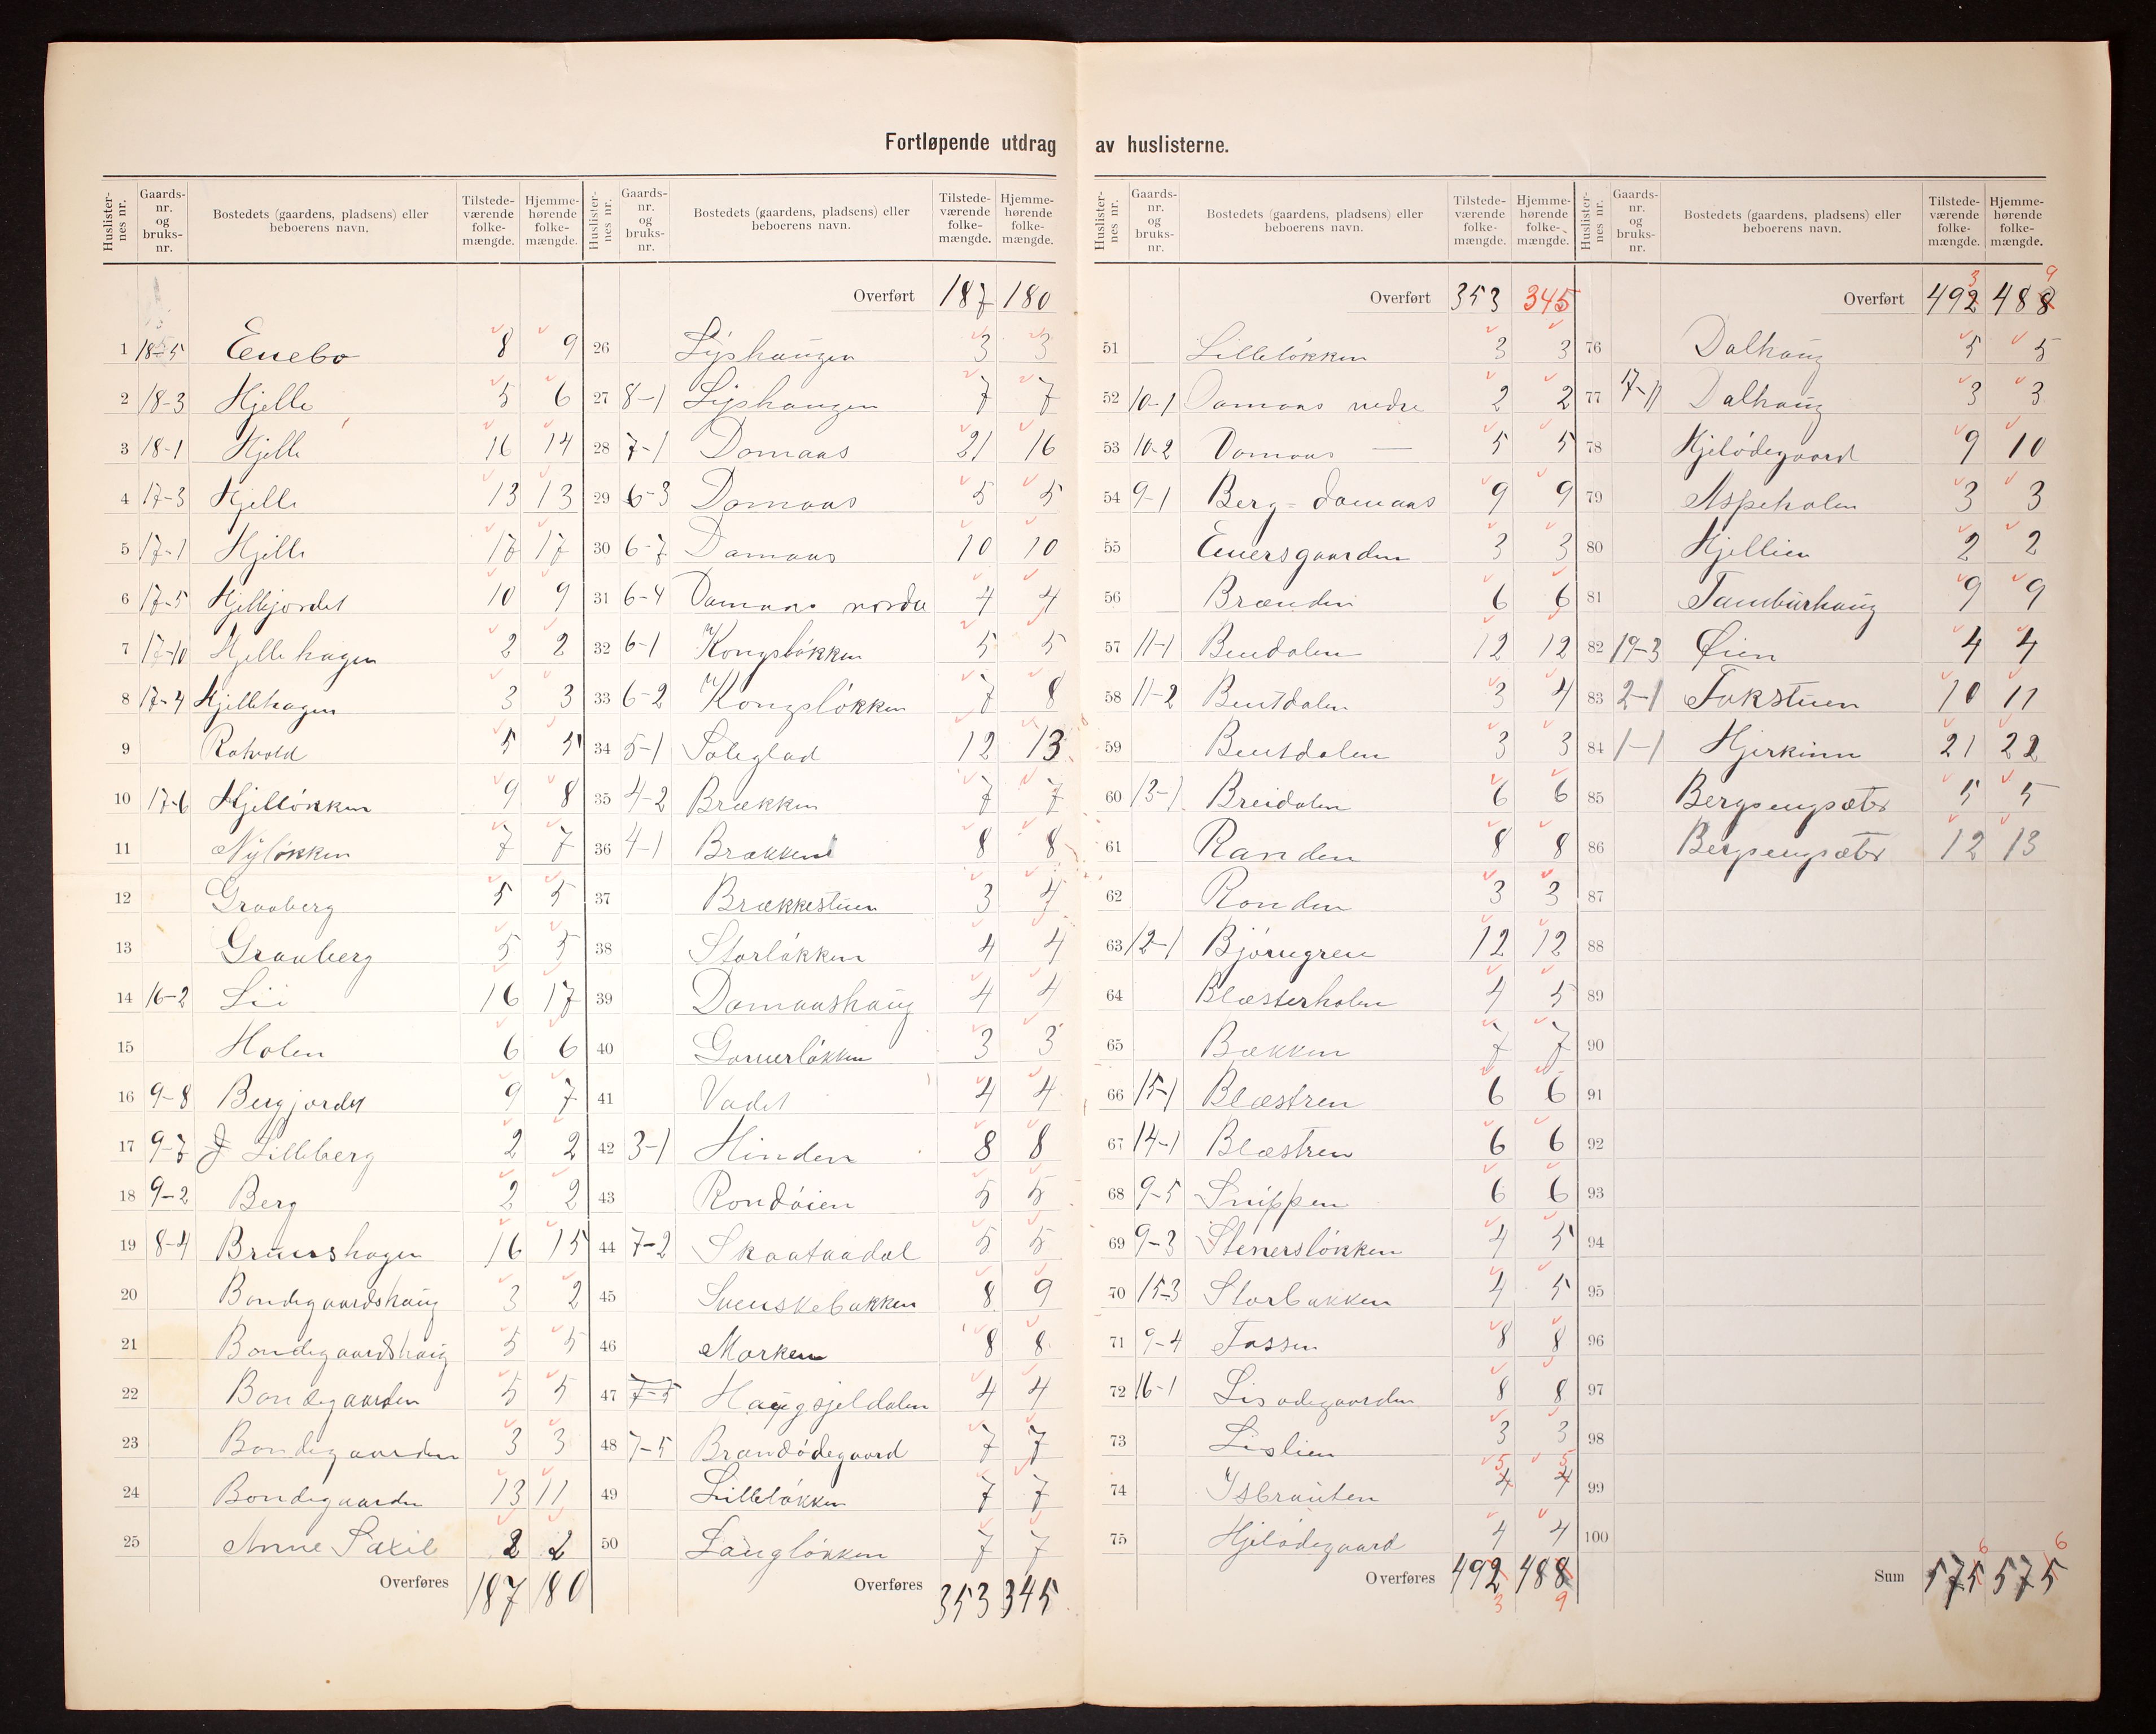 Fortløpende utdrag av huslisterne.
Huslister-nes nr. | Gaards-nr. og bruks-nr. | Bostedets (gaardens, pladsens) eller beboerens navn. | Tilstede-værende folke-mængde. | Hjemme-hørende folke-mængde.
1 18-5 Enebo 8 9
2 18-3 Hjelle 5 6
3 18-1 Hjelle 16 14
4 17-3 Hjelle 13 13
5 17-1 Hjelle 17 17
6 17-5 Hjellejordet 10 9
7 17-10 Hjellehagen 2 2
8 17-4 Hjellehagen 3 3
9 Rotvold 5 5
10 17-6 Hjelløkken 9 8
11 Nyløkken 7 7
12 Graaberg 5 5
13 Graaberg 5 5
14 16-2 Lii 16 17
15 Holen 6 6
16 9-8 Bergjordet 9 7
17 9-7 Lilleberg 2 2
18 9-2 Berg 2 2
19 8-4 Bruushagen 16 15
20 Bondegaardshaug 3 2
21 Bondegaardshaug 5 5
22 Bondegaarden 5 5
23 Bondegaarden 3 3
24 Bondegaarden 13 11
25 Anne Saxil 2 2
Overføres 187 180
Huslister-nes nr. | Gaards-nr. og bruks-nr. | Bostedets (gaardens, pladsens) eller beboerens navn. | Tilstede-værende folke-mængde. | Hjemme-hørende folke-mængde.
Overført 187 180
26 Lyshaugen 3 3
27 8-1 Lyshaugen 7 7
28 7-1 Domaas 21 16
29 6-3 Domaas 5 5
30 6-7 Domaas 10 10
31 6-4 Domaas nordre 4 4
32 6-1 Kongsløkken 5 5
33 6-2 Kongsløkken 7 8
34 5-1 Soleglad 12 13
35 4-2 Brækken 7 7
36 4-1 Brækken 8 8
37 Brækkestuen 3 4
38 Storløkken 4 4
39 Domaashaug 4 4
40 Gorverløkken 3 3
41 Vadet 4 4
42 3-1 Hinden 8 8
43 Rondøien 5 5
44 7-2 Skaataadal 5 5
45 Svenskebakken 8 9
46 Morken 8 8
47 7-5 Haugsjeldalen 4 4
48 7-5 Brandødegaard 7 7
49 Lilleløkken 7 7
50 Langløkken 7 7
Overføres 353 345
Huslister-nes nr. | Gaards-nr. og bruks-nr. | Bostedets (gaardens, pladsens) eller beboerens navn. | Tilstede-værende folke-mængde. | Hjemme-hørende folke-mængde.
Overført 353 345
51 Lilleløkken 3 3
52 10-1 Domaas nedre 2 2
53 10-2 Domaas — 5 5
54 9-1 Berg-Domaas 9 9
55 Enersgaarden 3 3
56 Brænden 6 6
57 11-1 Bendalen 12 12
58 11-2 Bentdalen 3 4
59 Bentdalen 3 3
60 13-1 Breidalen 6 6
61 Randen 8 8
62 Ronden 3 3
63 12-1 Bjørngren 12 12
64 Blæsterholen 4 5
65 Bækken 7 7
66 15-1 Blæstren 6 6
67 14-1 Blæstren 6 6
68 9-5 Snippen 6 6
69 9-3 Stenersløkken 4 5
70 15-3 Storbakken 4 5
71 9-4 Fossen 8 8
72 16-1 Lisødegaarden 8 8
73 Lislien 3 3
74 Ysbrauten 4 5 4 5
75 Hjelødegaard 4 4
Overføres 492 3 488 9
Huslister-nes nr. | Gaards-nr. og bruks-nr. | Bostedets (gaardens, pladsens) eller beboerens navn. | Tilstede-værende folke-mængde. | Hjemme-hørende folke-mængde.
Overført 492 3 488 9
76 Dalhaug 5 5
77 17-11 Dalhaug 3 3
78 Hjelødegaard 9 10
79 Aspeholen 3 3
80 Hjellien 2 2
81 Tamburhaug 9 9
82 19-3 Øien 4 4
83 2-1 Fokstuen 10 11
84 1-1 Hjerkinn 21 22
85 Bergsengsæter 5 5
86 Bergsengsæter 12 13
87
88
89
90
91
92
93
94
95
96
97
98
99
100
Sum 575 6 575 6